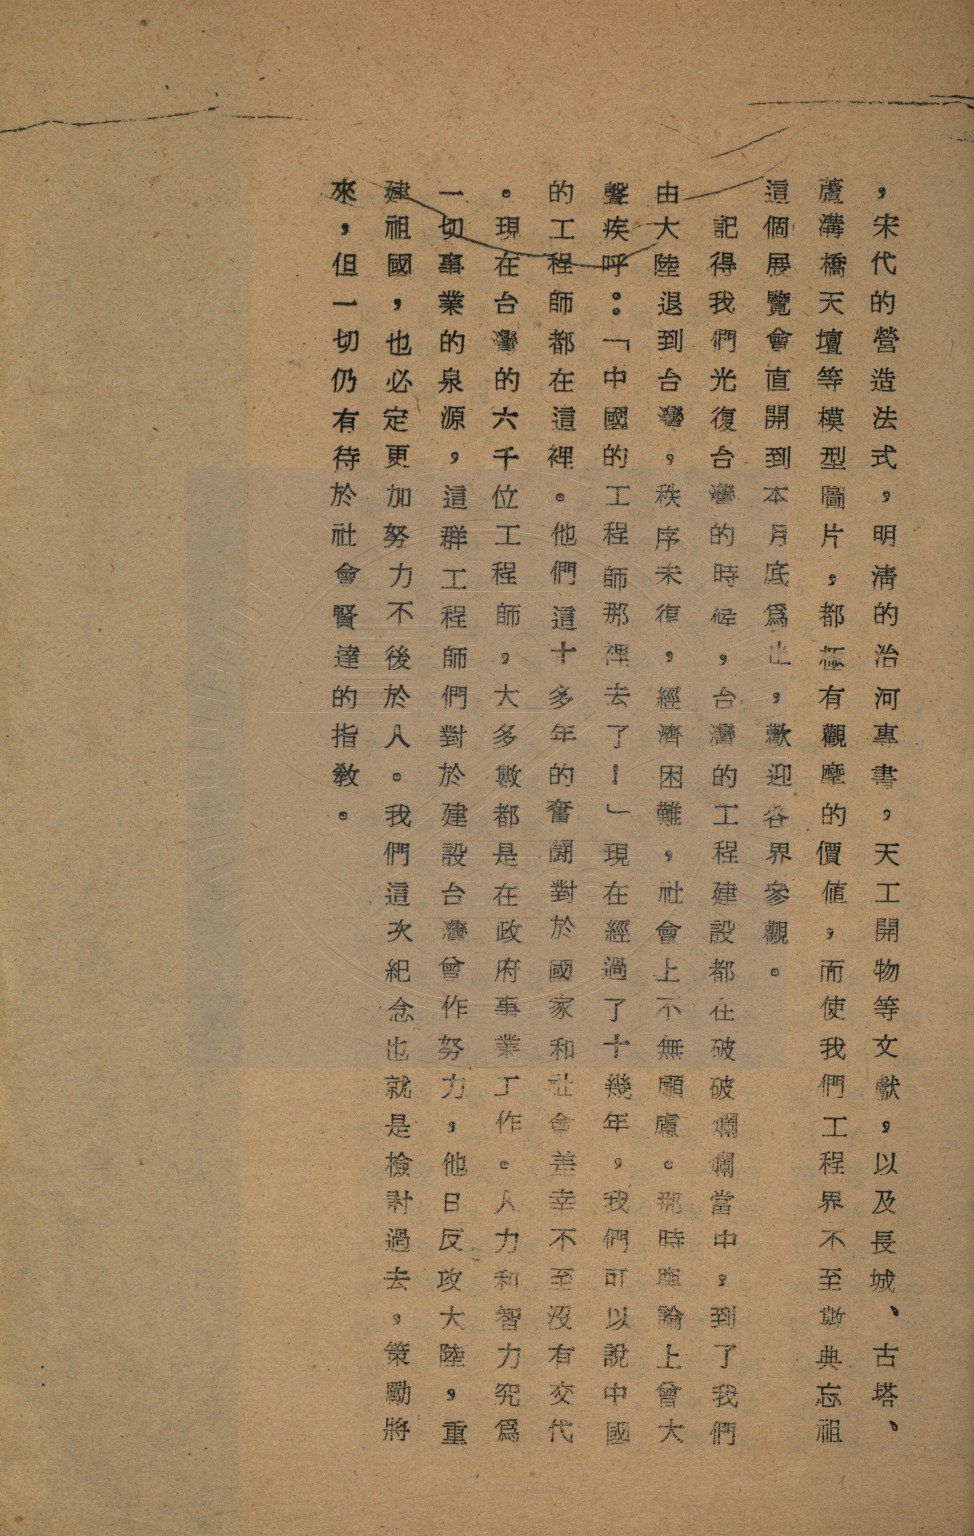 ，宋代的營造法式，明清的治河專書，天工開物等文獻，以及長城、古塔、
蘆溝橋天壇等模型圖片，都極有觀摩的價值，而使我們工程界不至數典忘祖
這個展覽會直開到本月底爲止，歡迎各界參觀。
記得我們光復台灣的時候，台灣的工程建設都在破破爛爛當中，到了我們
由大陸退到台灣，秩序未復，經濟困難，社會上不無顧慮。那時輿論上曾大
聲疾呼：「中國的工程師那裡去了！」現在經過了十幾年，我們可以說中國
的工程師都在這裡。他們這十多年的奮鬪對於國家和社會差幸不至沒有交代
。現在台灣的六千位工程師，大多數都是在政府事業工作。人力和智力究爲
一切事業的泉源，這群工程師們對於建設台灣曾作努力，他日反攻大陸，重
建祖國，也必定更加努力不後於人。我們這次紀念也就是檢討過去，策勵將
來，但一切仍有待於社會賢達的指教。